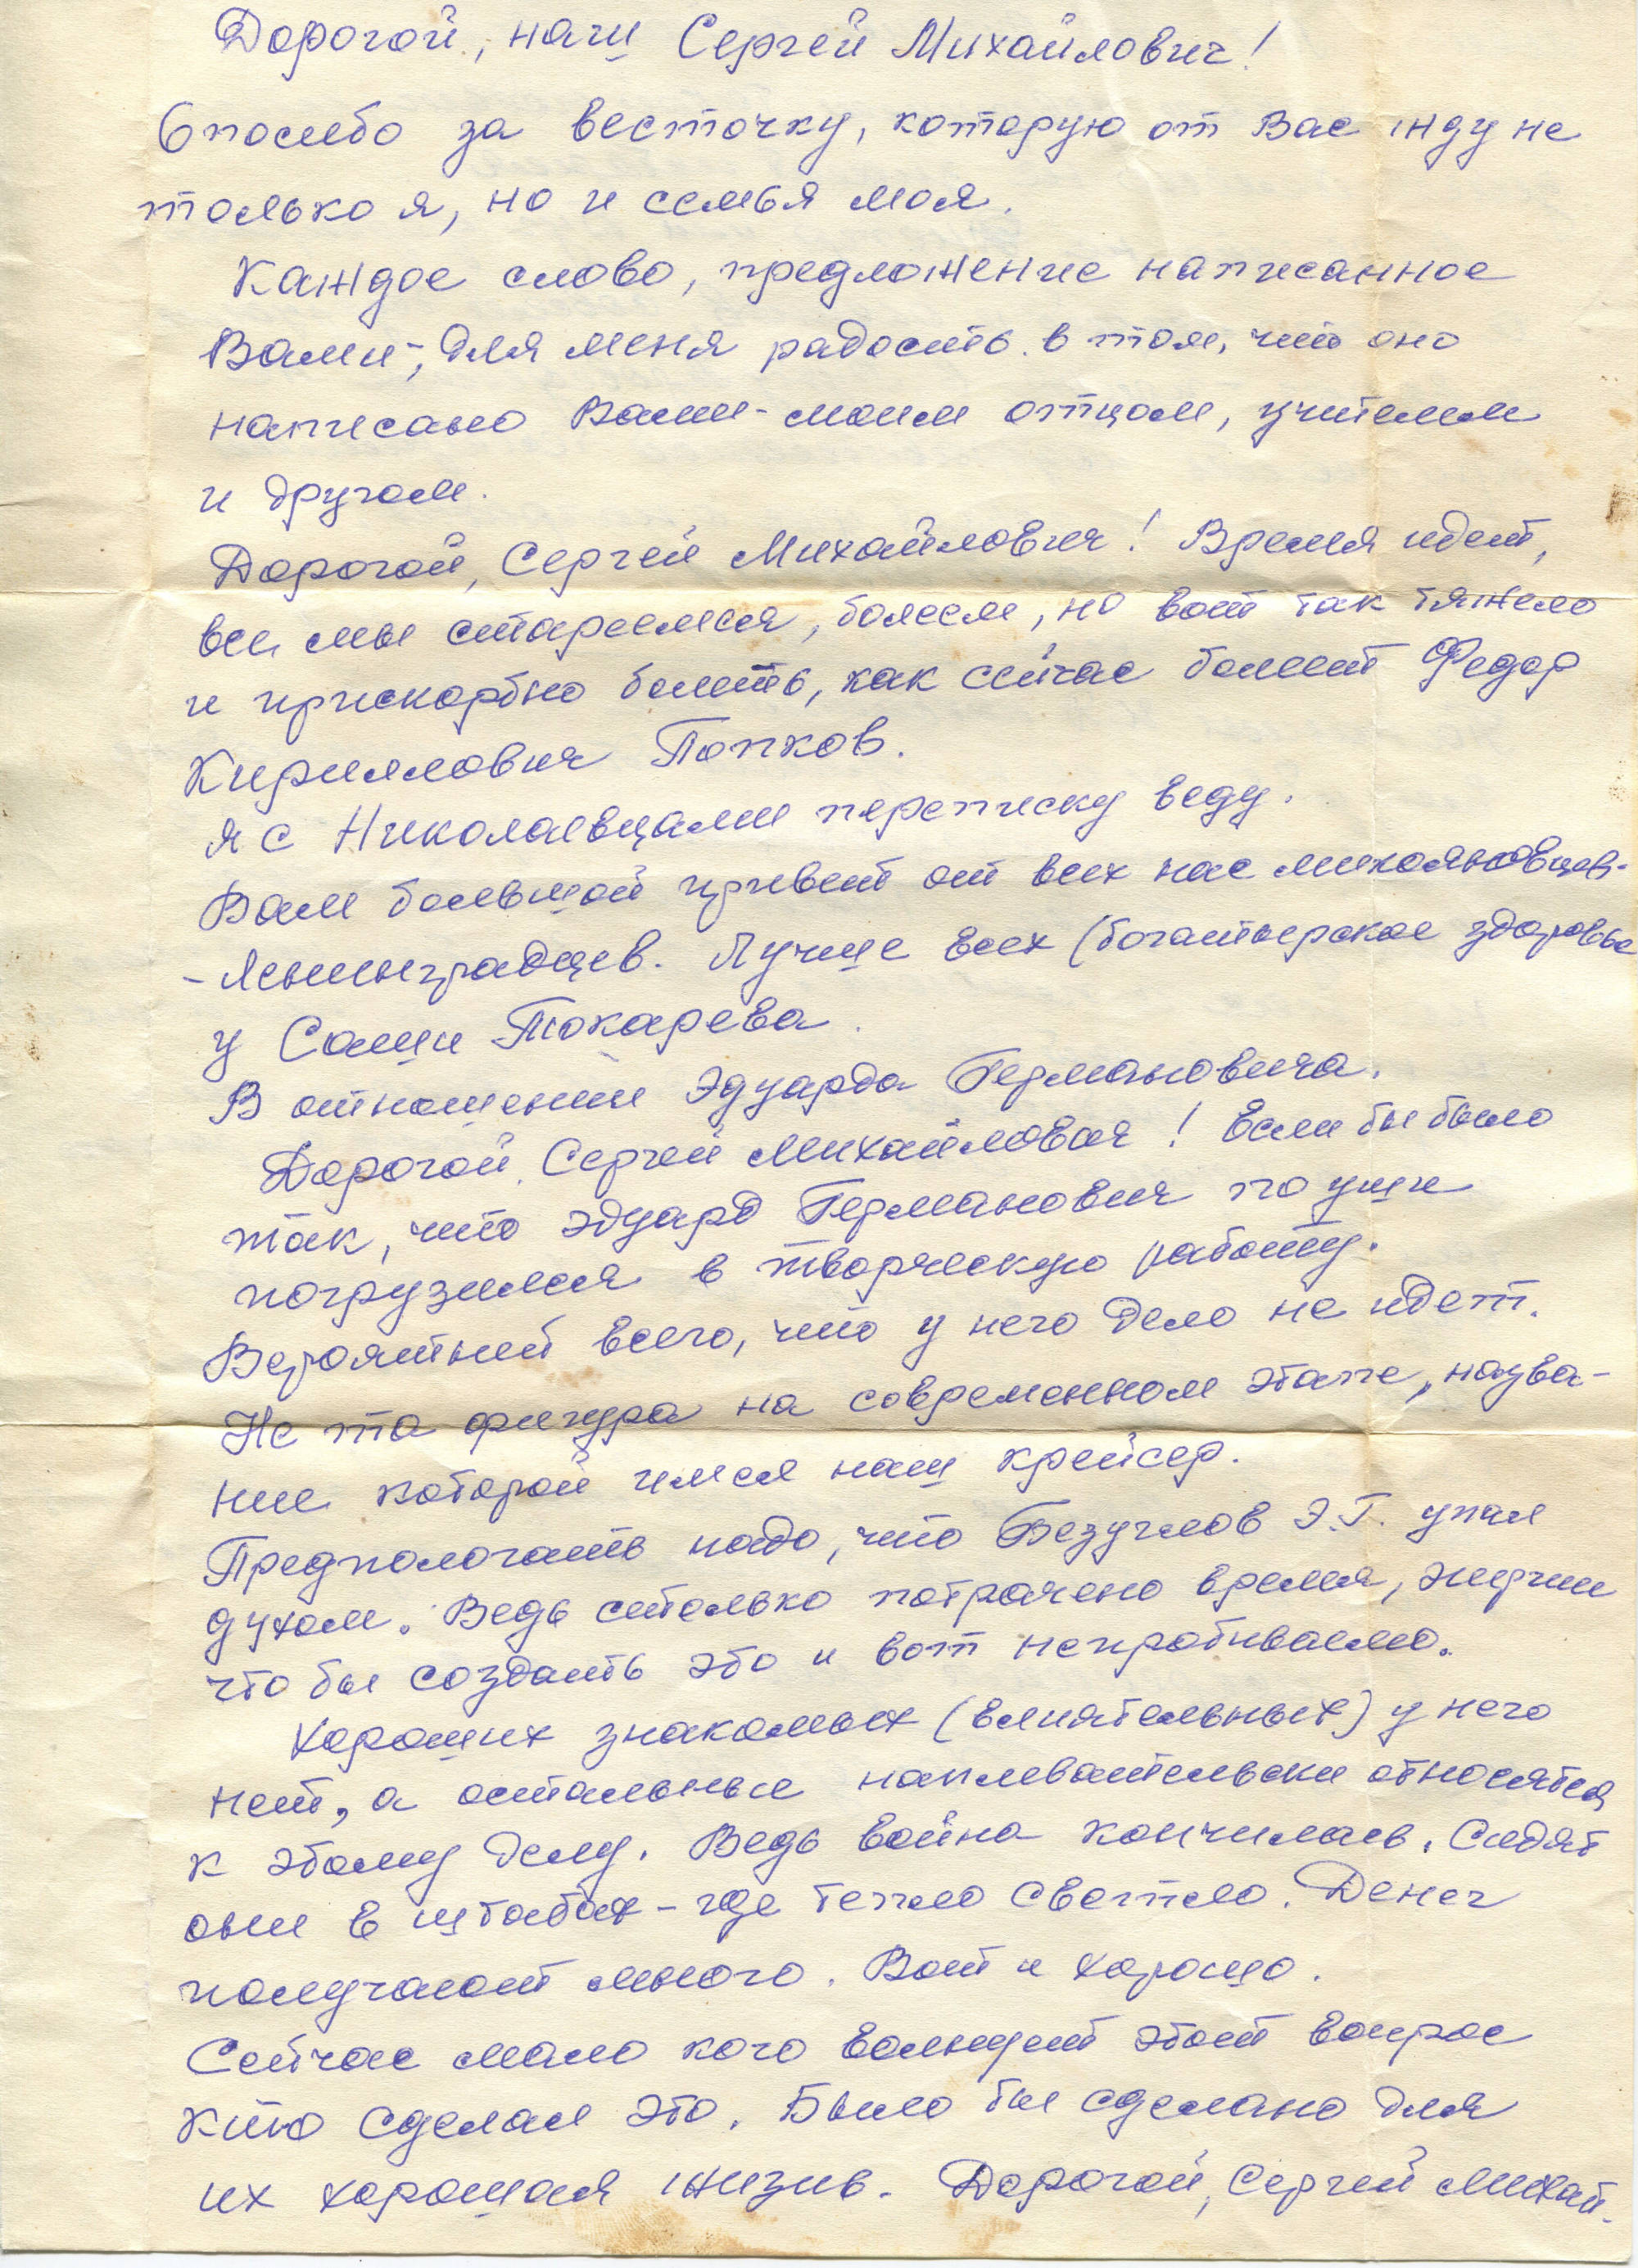 Дорогой, наш Сергей Михайлович!
Спосибо за весточку, которую от Вас жду не
только я, но и семья моя.
Каждое слово, предложение написанное
Вами-, для меня радость в том, что оно
написано Вами- моим отцом, учителем
и другом.
Дорогой, Сергей Михайлович! Время идет,
все мы стареемся, болеем, но вот так тяжело
и прискорбно болеть, как сейчас болеет Федор
Кириллович Попков.
Я с Николаевцами переписку веду.
Вам большой привет от всех нас микояновцев-
- Ленинградцев. Лучше всех (богатырское здоровье
у Саши Токарева.
В отношении Эдуарда Германовича.
Дорогой, Сергей Михайлович! Если бы было
так, что Эдуард Германович по уши
погрузился в творческую работу.
Вероятней всего, что у него дело не идет.
Не та фигура на современном этапе, назва-
ние которой имел наш крейсер.
Предпологать надо, что Безуглов Э.Г. упал
духом. Ведь столько потрачено время, энергии
что бы создать это и вот непробиваемо.
Хороших знакомых (влиятельных) у него
нет, а остальные наплевательски относятся
к этому делу. Ведь война кончилась. Сидят
они в штабах - где тепло светло. Денег
получают много. Вот и хорошо.
Сейчас мало кого волнует этот вопрос
кто сделал это. Было бы сделано для
их хорошая жизнь. Дорогой, Сергей Михай-